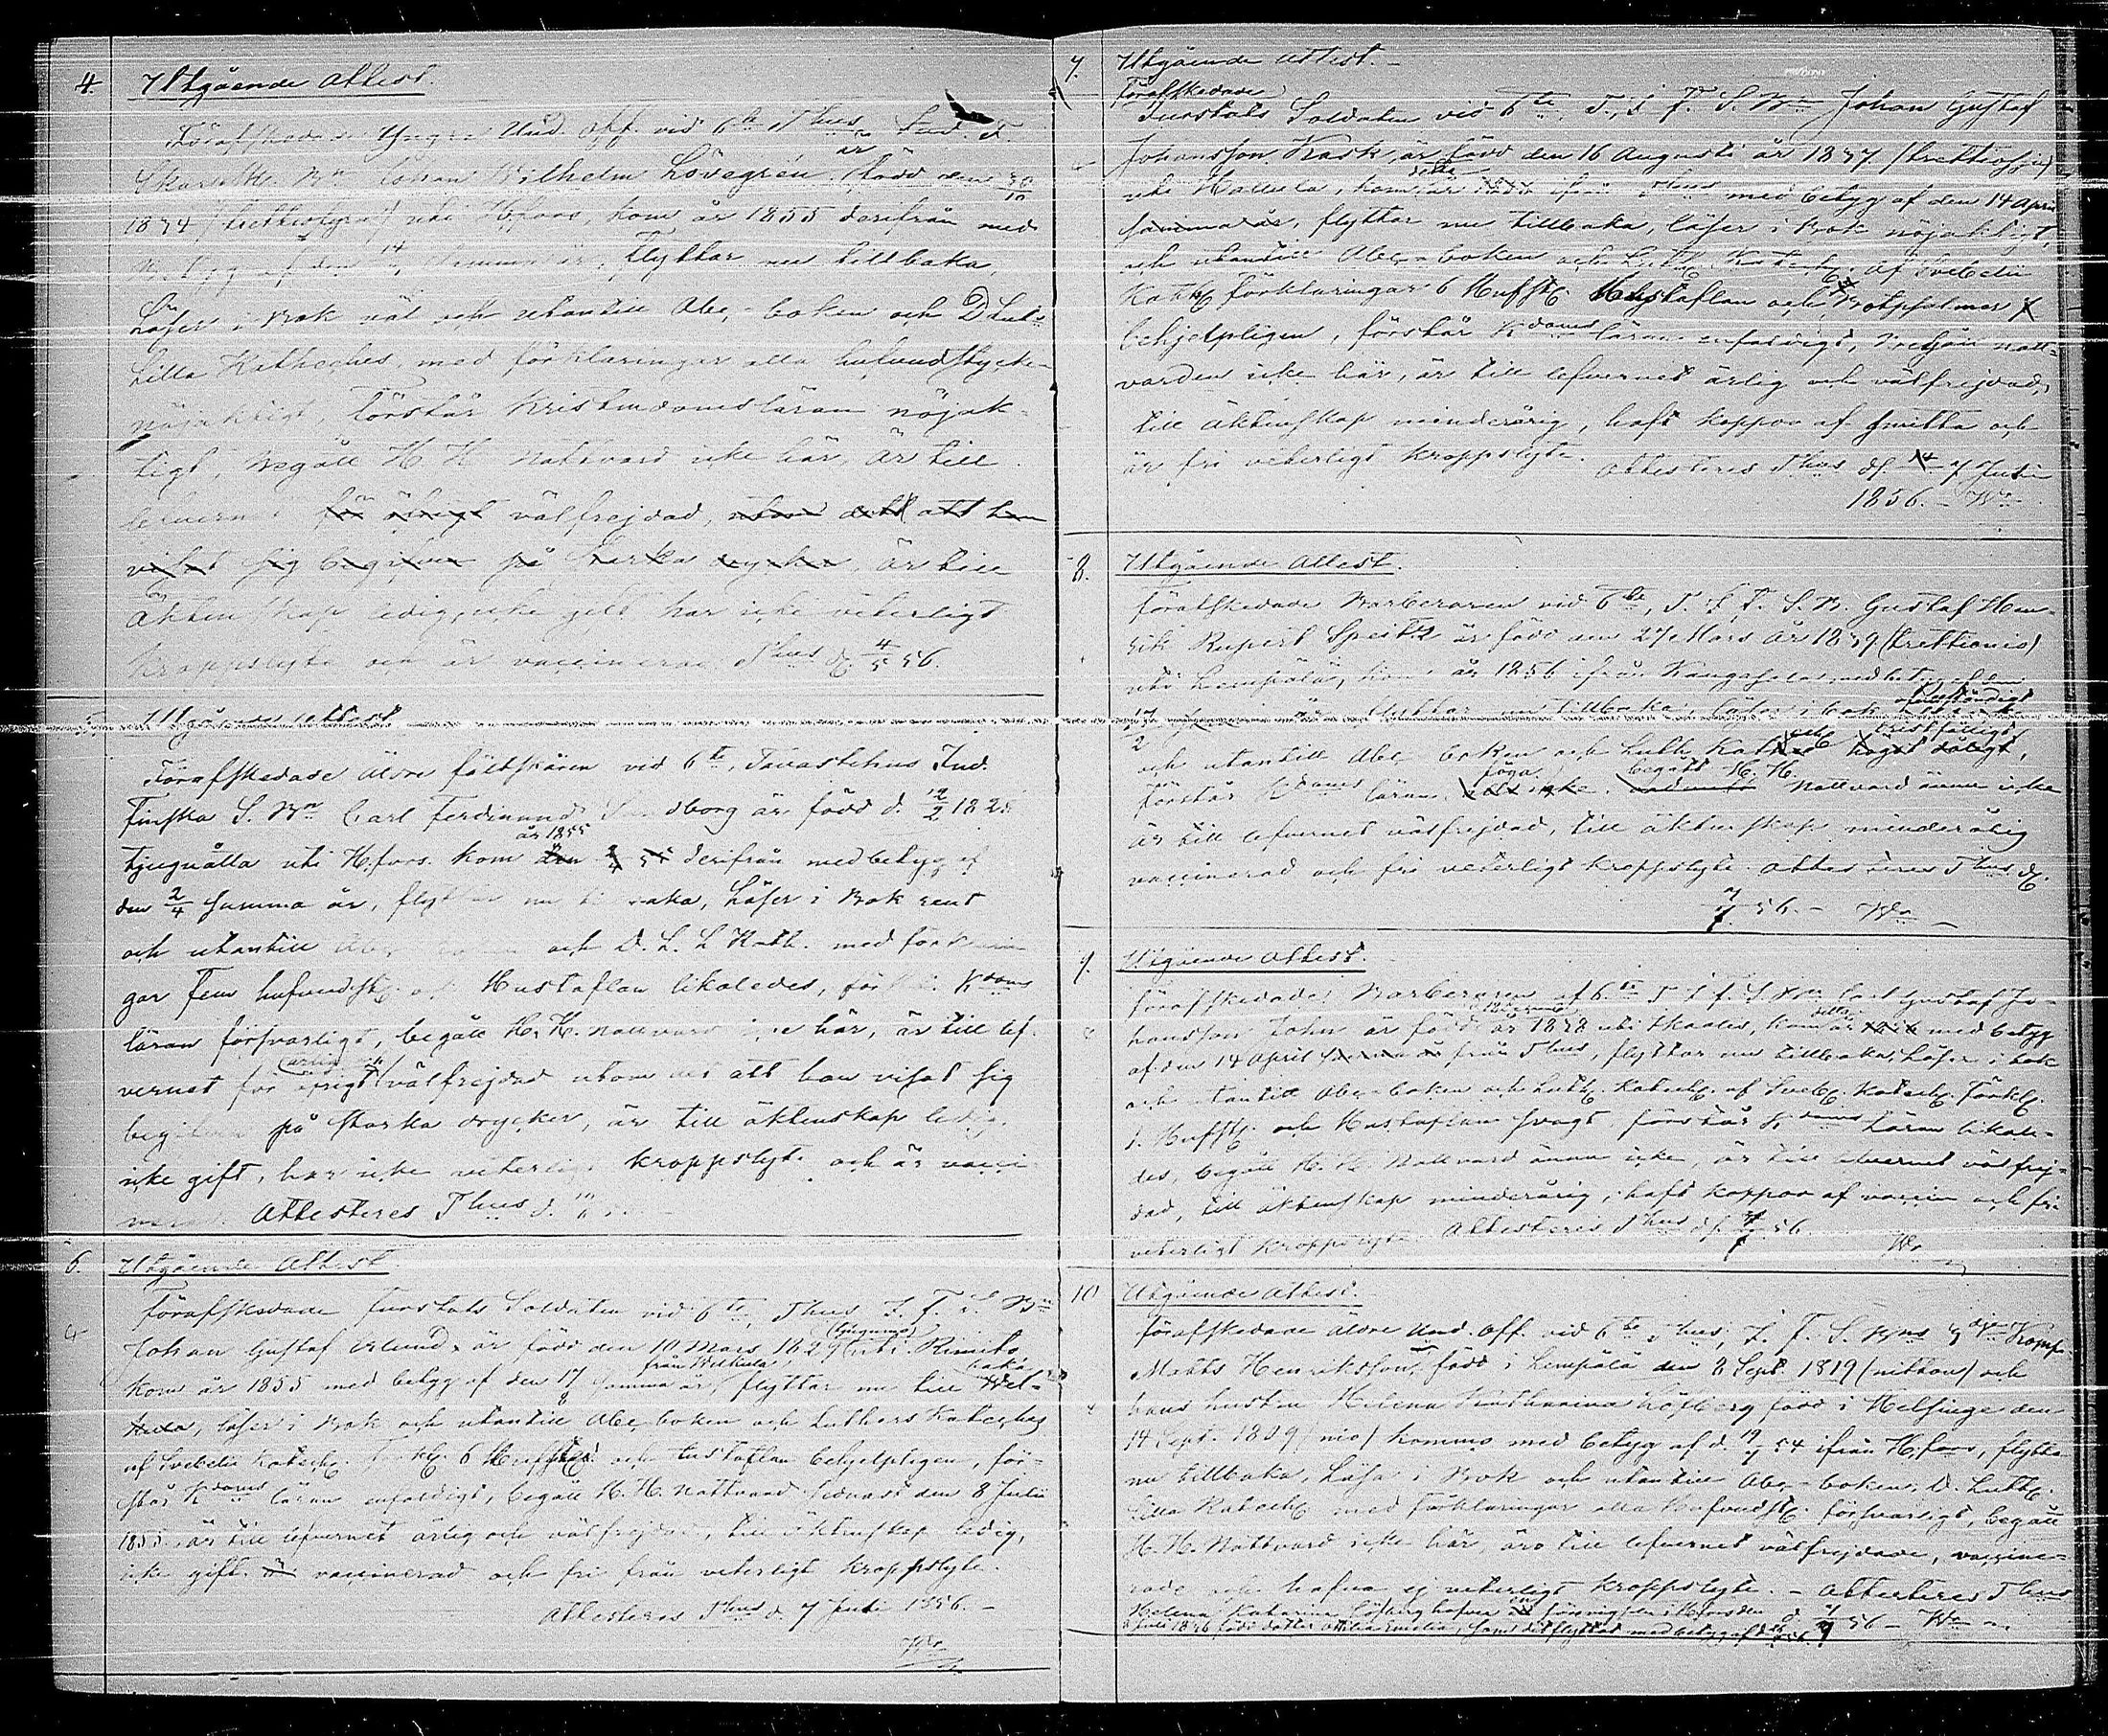 4. Utgående Attest.
Förafskedade Yngre Und. Off. vid 6te Thus Ind. F.
Skarp Sk. Bn Johan Wilhelm Lövegren är född den 30/10
1834 (trettiofyra) uti H.fors, kom år 1855 derifrån med
Betyg af den 14/4 samma år, flyttar nu tillbaka,
Läser i Bok väl och utantill Abc-boken och D Luth.
Lilla Katheches, med förklaringar alla hufvudstycke
nöjaktigt, förstår Kristendomsläran nöjak-
tigt, Begått H. H. Nattvard icke här, är till
lefvernet för öfrigt välfrejdad, utom det att han
visat sig begifven på starka drycker, är till
Äktenskap ledig, icke gift har icke veterligt
kroppslyte och är vaccinerad. Thus d. 4/5 56.
5. Utgående Attest.
Förafskedade äldre fältskären vid 6te Tavastehus Ind.
Finska S. Bn Carl Ferdinand Sandborg är född d. 12/2 1828
tjuguåtta uti H.fors. kom år 1855 den 2/4 55 derifrån med betyg af
den 2/4 samma år, flyttar nu tillbaka, Läser i Bok rent
och utantill Abc boken och D. L. L Kath. med förklarin
gar fem hufvudst. och Hustaflan likaledes, förstår Kdoms
läran försvarligt, begått H. H. nattvard icke här, är till lef-
vernet för öfrigt ärlig och välfrejdad utom det att han visat sig
begifven på starka drycker, är till äktenskap ledig,
icke gift, har icke veterligt kroppslyte och är vacci-
nerad. Attesteres Thus d.
6. Utgående Attest
Förafskedade Turstats Soldaten vid 6te Thus I. F. S. Bn
Johan Gustaf Eklund, är född den 10 Mars 1829 (tjugunio) uti Rimito
kom år 1855 med betyg af den 17/8 samma år, från Wethula, flyttar nu till baka Wet-
hula, läser i Bok och utantill Abc boken och Luthers Kateches
af Svebelii Kateches förkl. 6 Hufst. och Hustaflan behjelpligen, för-
står Kdoms läran enfaldigt, begått H. H. Nattvard sednast den 8 Julii
1855. är till lefvernet ärlig och välfrejdad, till äktenskap ledig,
icke gift är vaccinerad och fri från veterligt Kroppslyte.
Attesteres Thus d. 7 Juli 1856. –
Wr
7. Utgående Attest. –
Förafskedade
Turstats Soldaten vid 6te T. I. F. S. Bn Johan Gustaf
Johansson Kask, är född den 16 Augusti år 1837 (trettiosju)
uti Hattula, kom år ifrån Thus med betyg af den 14 April
samma år, flyttar nu tillbaka, läser i Bok nöjaktigt,
och utantill Abc-boken och Luth. Katech. af Svebelii
Kath. förklaringar 6 Hufst. Hustaflan och Botpsalmer
behjelpligen, förstår Kdoms läran enfaldigt, Begått natt-
varden icke här, är till lefvernet ärlig och välfrejdad,
till äktenskap minderårig, haft koppor af smitta och
är fri veterligt kroppslyte. Attesteres Thus d. 7 Juli
1856. – Wr
8. Utgående Attest.
Förafskedade Barberaren vid 6te, T. I. F. S. B. Gustaf Hen-
rik Rupert Speitz är född den 27 Mars år 1839 (trettionio)
uti Lempälä, kom år 1856 ifrån Kangasala med betyg af den
17/2 samma år flyttar nu tillbaka, läser i bok ofullständigt
och utantill Abc boken och Luth. Kath. bristfälligt,
förstår Kdoms läran föga, begått H. H. Nattvard ännu icke
är till lefvernet välfrejdad, till äktenskap minderårig
vaccinerad och fri veterligt kroppslyte. Attesteres Thus d.
7/7 56. – Wr –
9. Utgående Attest.
Förafskedade Barberaren af 6te T I F. S. Bn Carl Gustaf Jo-
hansson John är född år 1838 uti Skaates, kom år detta med betyg
af den 14 April samma år från Thus, flyttar nu tillbaka, läser i bok
och utantill Abc-boken och Luth. Katech. af Sveb. Katech. förkl.
1. Hufst. och Hustaflan svagt, förstår Kdoms Läran likale-
des, begått H. H. Nattvard ännu icke, är till lefvernet välfrej-
dad, till äktenskap minderårig, haft koppor af vaccin och fri
veterligt kroppslyte. Attesteres Thus d. 7/7 56.
Wr
10 Utgående Attest.
Förafskedade äldre Und. Off. vid 6te Thus, I. F. S. Bns 4dje Komp.
Matts Henriksson, född i Lempälä den 8 Sept. 1819 (nitton) och
hans hustru Helena Katharina Löfberg född i Helsinge den
14 Sept. 1809 (nio) kommo med betyg af d. 19/7 54 ifrån H.fors, flytta
nu tillbaka, Läsa i Bok och utantill Abc-boken, D. Luth.
Lilla Katech. med förklaringar alla hufvudst. försvarligt, begått
H. H. Nattvard icke här, äro till lefvernet välfrejdade, vaccine-
rade och hafva ej veterligt kroppslyte. – Attesteres Thus
d. 7/7 56 – Wr
Helena Katarina Löfberg hafver i H.fors den
Juli 1856 född dotter Otilia Emelia, samt dit flyttat med betyg af d.